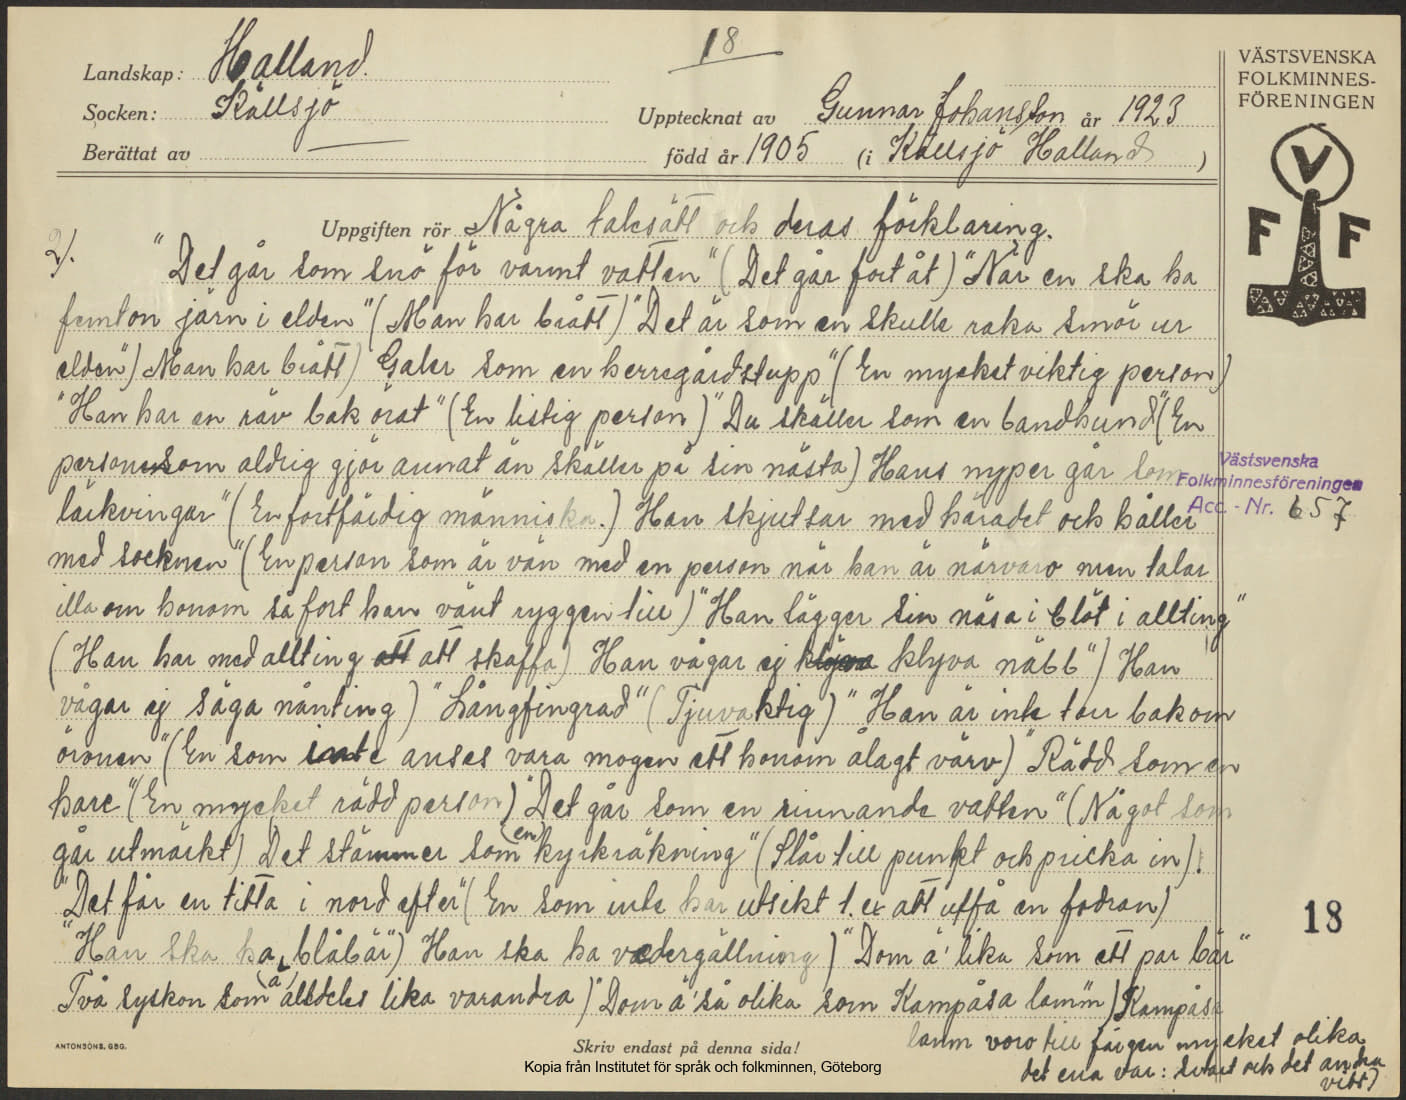 18
Landskap: Halland.
Socken: Källsjö
Berättat av
Upptecknat av Gunnar Johansson år 1923
född år 1905 (i Källsjö Halland)
VÄSTSVENSKA
FOLKMINNES-
FÖRENINGEN
V
F F
Uppgiften rör Några talesätt och deras förklaring.
2).
"Det går som snö för varmt vatten" (Det går fort åt) "När en ska ha
femton järn i elden" (Man har brått) "Det är som en skulle raka smör ur
elden") Man har brått) Galer som en herregårdstupp" (En mycket viktig person)
"Han har en räv bak örat" (En listig person) "Du skäller som en bandhund" (En
person som aldrig gjör annat än skäller på sin nästa) Hans nyper går som
lärkvingar" (En fortfärdig människa.) Han skjutsar med häradet och håller
med socknen" (En person som är vän med en person när han är närvaro men talar
illa om honom så fort han vänt ryggen till) "Han lägger sin näsa i blöt i allting"
(Han har med allting att att skaffa) Han vågar ej klyva klyva näbb") Han
vågar ej säga nånting) "Långfingrad" (Tjuvaktig) "Han är inte torr bakom
öronen" (En som inte anses vara mogen ett honom ålagt värv) "Rädd som en
hare" (En mycket rädd person) "Det går som en rinnande vatten" (Något som
går utmärkt) Det stämmer som (en) kyrkräkning" (Slår till punkt och pricka in).
"Det får en titta i nord efter" (En som inte har utsikt t.ex att uffå en fodran)
"Han ska ha blåbär") Han ska ha vedergällning) "Dom ä' lika som ett par bär"
Två syskon som (ä) alldeles lika varandra) "Dom ä' så olika som Kampåsa lamm) Kampåsa
lamm voro till färgen mycket olika
det ena var: svart och det andra
vitt)
Västsvenska
Folkminnesföreningen
Acc. - Nr. 657
18
ANTONSONS, GBG.
Skriv endast på denna sida!
Kopia från Institutet för språk och folkminnen, Göteborg